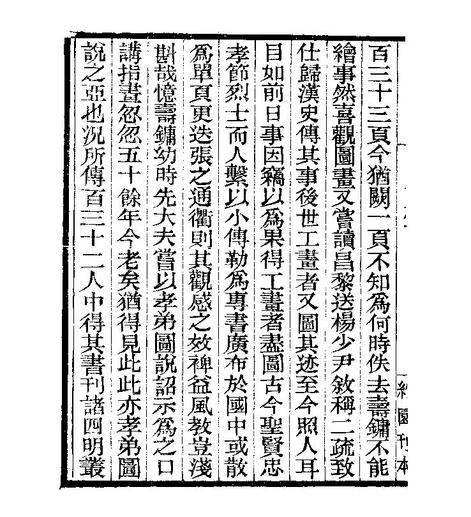 百三十三頁今猶闕一頁不知爲何時佚去壽鏞不能
繪事然喜觀圖畫又嘗讀昌黎送楊少尹敘稱二疏致
仕歸漢史傳其事後世工畫者又圖其迹至今照人耳
目如前日事因竊以爲果得工畫者盡圖古今聖賢忠
孝節烈士而人繫以小傳勒爲專書廣布於國中或散
爲單頁更迭張之通衢則其觀感之效裨益風教豈淺
尟哉憶壽鏞幼時先大夫嘗以孝弟圖說詔示爲之口
講指畫忽忽五十餘年今老矣猶得見此此亦孝弟圖
說之亞也況所傳百三十二人中得其書刊諸四明叢
約園刊本